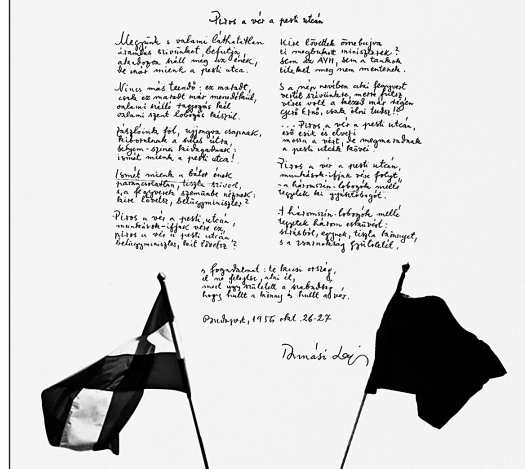 Piros a vér a pesti utcán
Megyünk s valami láthatatlan
áramlás szívünket befutja,
akadozva száll még az ének,
de már mienk a pesti utca.
Nincs más teendő: ez maradt,
csak ez maradt már menedékül,
valami szálló ragyogás kél
valami szent lobogás készül.
Zászlóink föl, ujjongva csapnak,
kiborulnak a széles útra,
selyem-színei kidagadnak:
ismét mienk a pesti utca!
Ismét mienk a bátor ének
parancsolatlan, tiszta szívvel,
s a fegyverek szemünkbe néznek:
kire lövetsz, belügyminiszter?
Piros a vér a pesti utcán,
munkások-ifjak vére ez,
piros a vér a pesti utcán,
belügyminiszter, kit lövetsz?
Kire lövettek összebújva
ti megbukott miniszterek?
sem az ÁVH, sem a tankok
titeket meg nem mentenek.
S a nép nevében aki fegyvert
vertél szívünkre, merre futsz,
véres volt a kezed már régen
Gerő Ernő, csak ölni tudsz!?
...Piros a vér a pesti utcán,
eső esik és elveri
mossa a vért, de megmaradnak
a pesti utcák kövei!
Piros a vér a pesti utcán,
munkások-ifjak vére folyt,
-a háromszín-lobogók mellé
tegyetek ki gyászlobogót.
A háromszín-lobogók mellé
tegyetek három esküvést:
sírásból, egynek, tiszta könnyet,
s a zsarnokság gyűlöletét,
s fogadalmat: te kicsi ország,
el ne felejtse, aki él,
mert úgy született a szabadság,
hogy hullt a könny s hullt a vér.
Budapest, 1956 okt. 26-27
Tamási Lajos